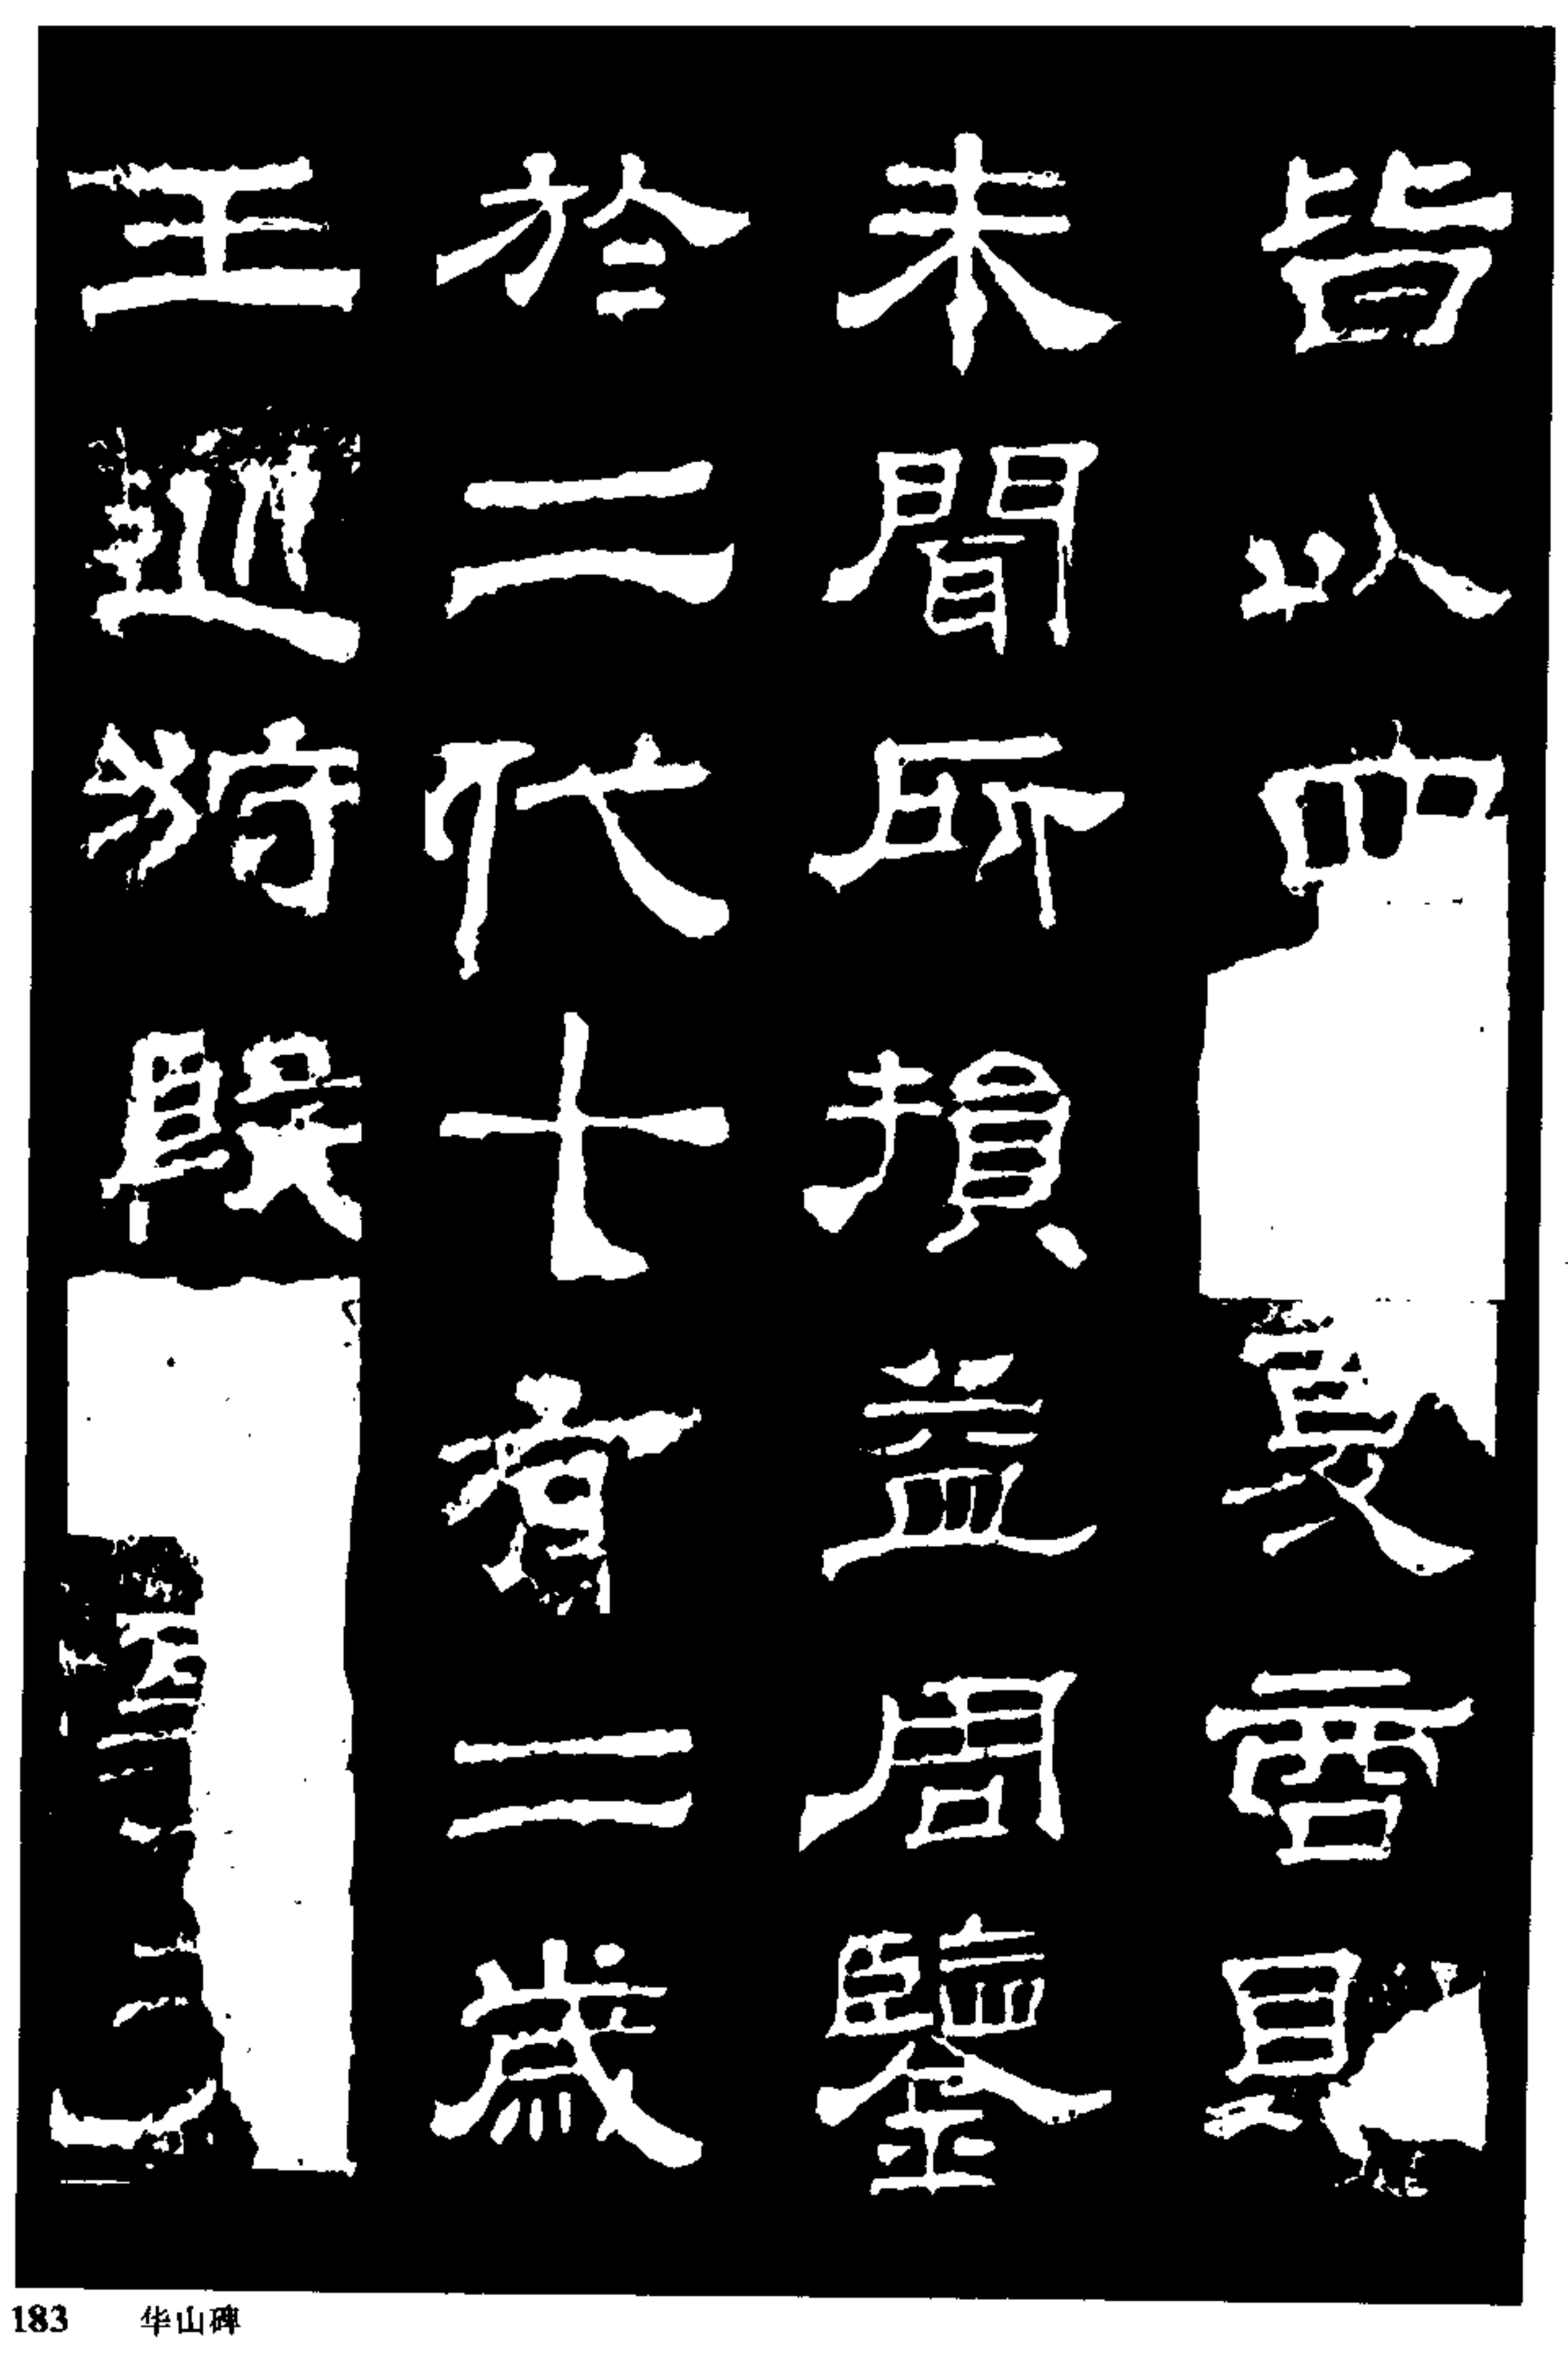 皆以四夏商則
未聞所損益周鑒
於二代十有二歲
王巡狩殷
183 华山碑